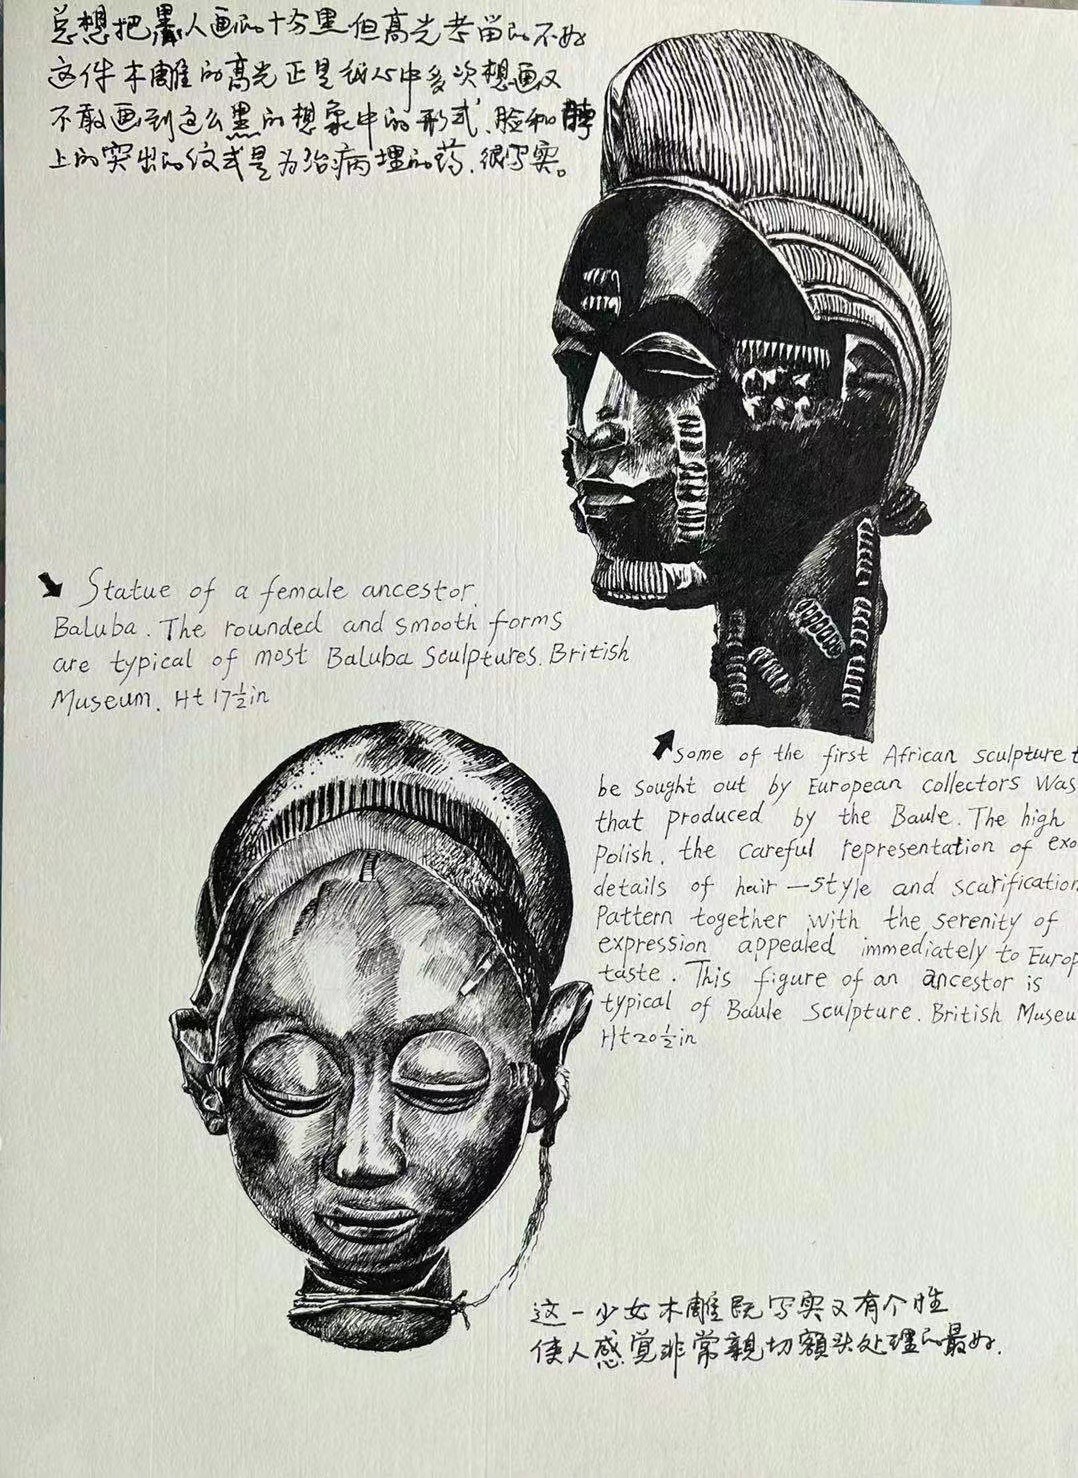 总想把黑人画的十分黑但高光老留的不好
这件木雕的高光正是我心中多次想画又
不敢画到这么黑的想象中的形式、脸和脖
上的突出的纹式是为治病埋的药.很写实。
Statue of a female ancestor.
Baluba. The rounded and smooth forms
are typical of most Baluba sculptures. British
Museum. Ht 17½in
some of the first African sculpture t
be sought out by European collectors was
that produced by the Baule. The high
Polish, the careful representation of exo
details of hair-style and scarification
Pattern together with the serenity of
expression appealed immediately to Europ
taste. This figure of an ancestor is
typical of Baule sculpture. British Museu
Ht 20½in
这一少女木雕既写实又有个性
使人感觉非常亲切额头处理的最好.